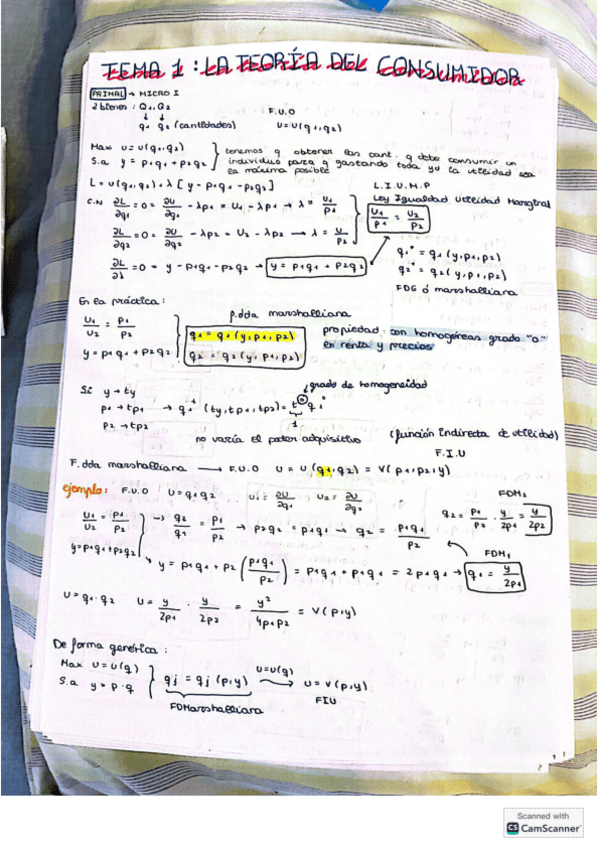 TEMA 1 : LA TEORÍA DEL CONSUMIDOR
PRIMAL → MICRO I
2 bienes : Q1, Q2
F.U.O
q1 q2 (cantidades) U=U(q1,q2)
Max U=U(q1,q2)
S.a y = p1q1 + p2q2
tenemos q obtener las cant. q debe consumir un
individuo para q gastando toda su la utilidad sea
la máxima posible
L = U(q1,q2) + λ [y - p1q1 - p2q2]
L.I.U.M.P
Ley Igualdad Utilidad Marginal
C.N ∂L/∂q1 = 0 = ∂U/∂q1 - λp1 = U1 - λp1 → λ = U1/p1
U1/p1 = U2/p2
∂L/∂q2 = 0 = ∂U/∂q2 - λp2 = U2 - λp2 → λ = U/p2
∂L/∂λ = 0 = y - p1q1 - p2q2 → y = p1q1 + p2q2
q1* = q1 (y,p1,p2)
q2* = q2 (y,p1,p2)
FDG ó marshalliana
En la práctica:
p.dda marshalliana
U1/U2 = p1/p2
y = p1q1 + p2q2
q1 = q1 (y,p1,p2)
q2 = q2 (y,p1,p2)
propiedad: son homogéneas grado "0"
en renta y precios
Si y→ty
grado de homogeneidad
p1→tp1 → q1* (ty,tp1,tp2) = t⁰ q1*
1
p2→tp2
no varía el poder adquisitivo
(función indirecta de utilidad)
F.I.U
F. dda marshalliana → F.U.O U = U(q1,q2) = V(p1,p2,y)
ejemplo: F.U.O U=q1q2 U1 = ∂U/∂q1 U2 = ∂U/∂q2
FDM2
q2 = p1/p2 · y/2p1 = y/2p2
U1/U2 = p1/p2 → q2/q1 = p1/p2 → p2q2 = p1q1 → q2 = p1q1/p2
FDM1
y=p1q1+p2q2
y = p1q1 + p2 (p1q1/p2) = p1q1 + p1q1 = 2p1q1 → q1 = y/2p1
U=q1·q2 U = y/2p1 · y/2p2 = y²/4p1p2 = V(p,y)
De forma genérica :
Max U=U(q)
S.a y=p·q
qj = qj (p,y)
U=U(q)
→ U = V(p,y)
FDMarshalliana
FIU
Scanned with
CS CamScanner